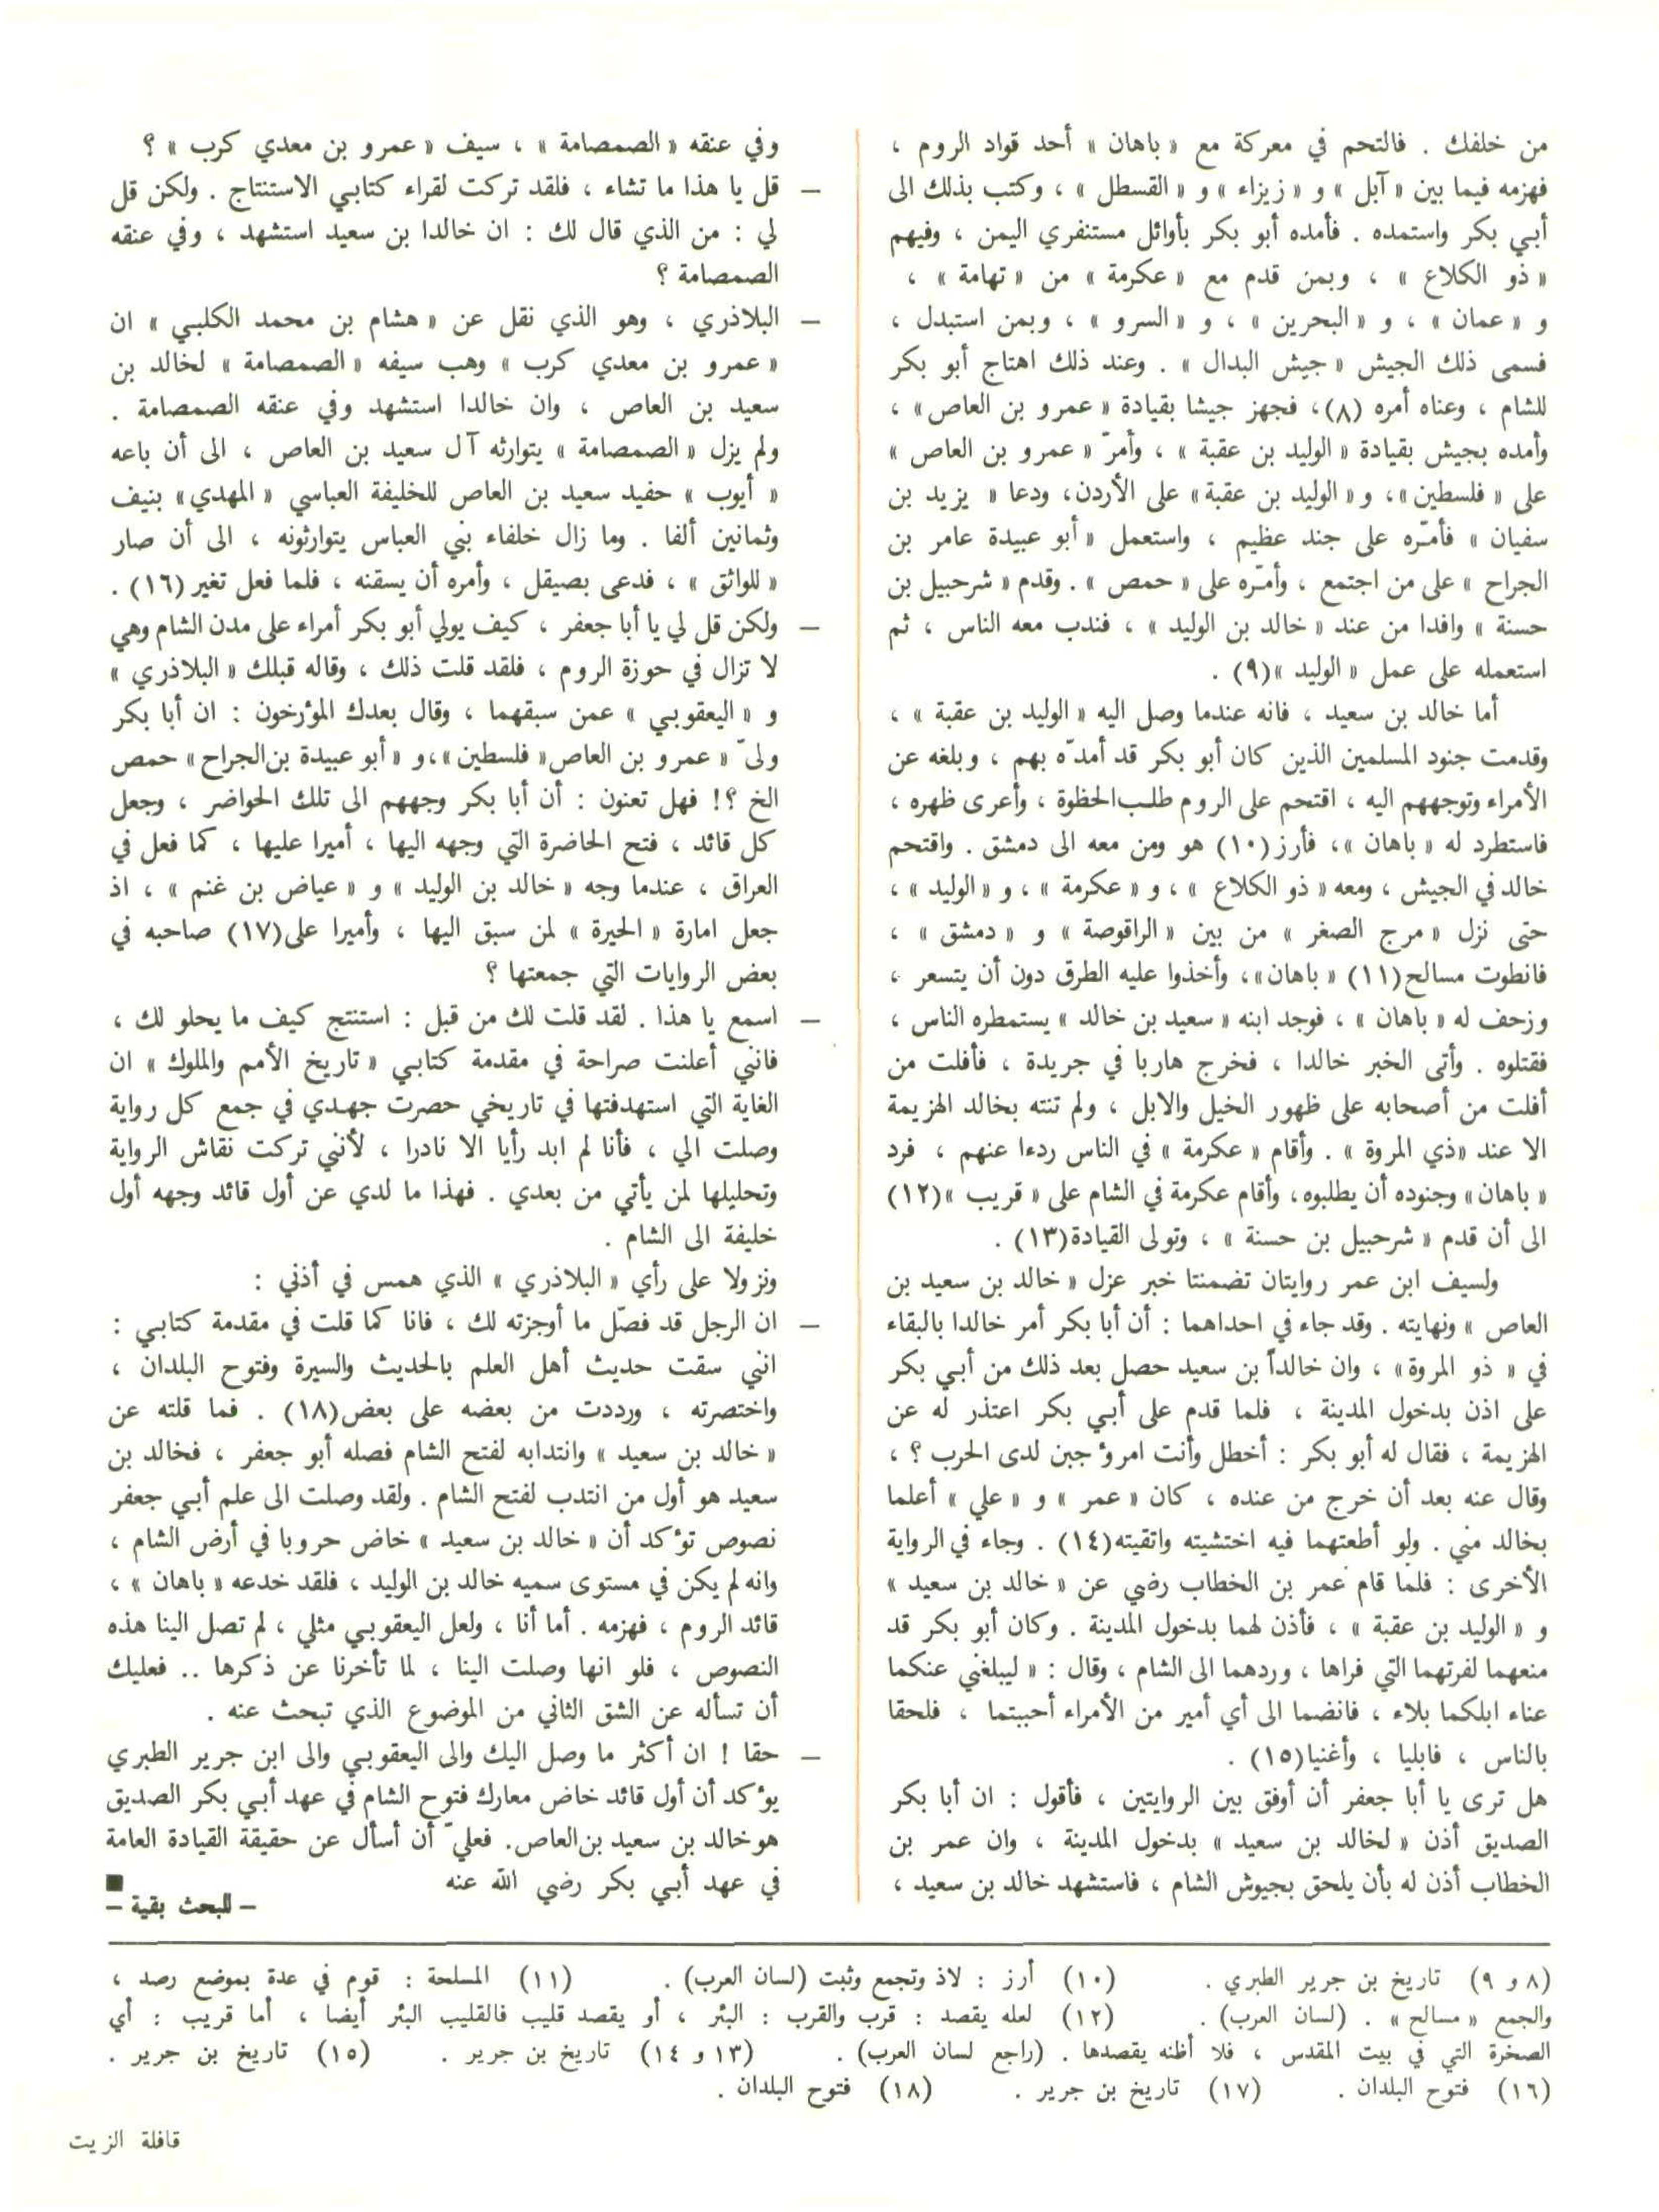 من خلفك . فالتحم في معركة مع « باهان » أحد قواد الروم ،
فهزمه فيما بين « آبل » و « زيزاء » و « القسطل » ، وكتب بذلك الى
أبي بكر واستمده . فأمده أبو بكر بأوائل مستنفري اليمن ، وفيهم
« ذو الكلاع » ، وبمن قدم مع « عكرمة » من « تهامة » ،
و « عمان » ، و « البحرين » ، و « السرو » ، وبمن استبدل ،
فسمى ذلك الجيش « جيش البدال » . وعند ذلك اهتاج أبو بكر
للشام ، وعناه أمره (٨)، فجهز جيشا بقيادة « عمرو بن العاص» ،
وأمده بجيش بقيادة « الوليد بن عقبة » ، وأمرّ « عمرو بن العاص »
على « فلسطين»، و « الوليد بن عقبة» على الأردن، ودعا « يزيد بن
سفيان » فأمـّره على جند عظيم ، واستعمل « أبو عبيدة عامر بن
الجراح » على من اجتمع ، وأمـّره على « حمص » . وقدم « شرحبيل بن
حسنة » وافدا من عند « خالد بن الوليد » ، فندب معه الناس ، ثم
استعمله على عمل « الوليد »(٩) .
أما خالد بن سعيد ، فانه عندما وصل اليه « الوليد بن عقبة » ،
وقدمت جنود المسلمين الذين كان أبو بكر قد أمدّه بهم ، وبلغه عن
الأمراء وتوجههم اليه ، اقتحم على الروم طلب الحظوة ، وأعرى ظهره ،
فاستطرد له « باهان »، فأرز (١٠) هو ومن معه الى دمشق . واقتحم
خالد في الجيش ، ومعه « ذو الكلاع » ، و « عكرمة » ، و « الوليد » ،
حتى نزل « مرج الصفر » من بين « الراقوصة » و « دمشق » ،
فانطوت مسالح (١١) « باهان»، وأخذوا عليه الطرق دون أن يتسعر ،
وزحف له « باهان » ، فوجد ابنه « سعيد بن خالد » يستمطره الناس ،
فقتلوه . وأتى الخبر خالدا ، فخرج هاربا في جريدة ، فأفلت من
أفلت من أصحابه على ظهور الخيل والابل ، ولم تنته بخالد الهزيمة
الا عند «ذي المروة » . وأقام « عكرمة » في الناس ردءا عنهم ، فرد
« باهان » وجنوده أن يطلبوه، وأقام عكرمة في الشام على « قريب »(١٢)
الى أن قدم « شرحبيل بن حسنة » ، وتولى القيادة(١٣) .
ولسيف ابن عمر روايتان تضمنتا خبر عزل « خالد بن سعيد بن
العاص » ونهايته . وقد جاء في احداهما : أن أبا بكر أمر خالدا بالبقاء
في « ذو المروة» ، وان خالداً بن سعيد حصل بعد ذلك من أبي بكر
على اذن بدخول المدينة ، فلما قدم على أبي بكر اعتذر له عن
الهزيمة ، فقال له أبو بكر : أخطل وأنت امرؤ جبن لدى الحرب ؟ ،
وقال عنه بعد أن خرج من عنده ، كان « عمر » و « علي » أعلما
بخالد مني . ولو أطعتهما فيه اختشيته واتقيته(١٤) . وجاء في الرواية
الأخرى : فلما قام عمر بن الخطاب رضي عن « خالد بن سعيد »
و « الوليد بن عقبة » ، فأذن لهما بدخول المدينة . وكان أبو بكر قد
منعهما لفرتهما التي فراها ، وردهما الى الشام ، وقال : « ليبلغني عنكما
عناء ابلكما بلاء ، فانضما الى أي أمير من الأمراء أحببتما ، فلحقا
بالناس ، فابليا ، وأغنيا(١٥) .
هل ترى يا أبا جعفر أن أوفق بين الروايتين ، فأقول : ان أبا بكر
الصديق أذن « لخالد بن سعيد » بدخول المدينة ، وان عمر بن
الخطاب أذن له بأن يلحق بجيوش الشام ، فاستشهد خالد بن سعيد ،
وفي عنقه « الصمصامة » ، سيف « عمرو بن معدي كرب » ؟
— قل يا هذا ما تشاء ، فلقد تركت لقراء كتابي الاستنتاج . ولكن قل
لي : من الذي قال لك : ان خالدا بن سعيد استشهد ، وفي عنقه
الصمصامة ؟
— البلاذري ، وهو الذي نقل عن « هشام بن محمد الكلبي » ان
« عمرو بن معدي كرب » وهب سيفه « الصمصامة » لخالد بن
سعيد بن العاص ، وان خالدا استشهد وفي عنقه الصمصامة .
ولم يزل « الصمصامة » يتوارثه آل سعيد بن العاص ، الى أن باعه
« أيوب » حفيد سعيد بن العاص للخليفة العباسي « المهدي» بنيف
وثمانين ألفا . وما زال خلفاء بني العباس يتوارثونه ، الى أن صار
« للواثق » ، فدعى بصيقل ، وأمره أن يسقنه ، فلما فعل تغير (١٦) .
— ولكن قل لي يا أبا جعفر ، كيف يولي أبو بكر أمراء على مدن الشام وهي
لا تزال في حوزة الروم ، فلقد قلت ذلك ، وقاله قبلك « البلاذري »
و « اليعقوبي » عمن سبقهما ، وقال بعدك المؤرخون : ان أبا بكر
ولىّ « عمرو بن العاص« فلسطين»،و « أبو عبيدة بن الجراح» حمص
الخ ؟! فهل تعنون : أن أبا بكر وجههم الى تلك الحواضر ، وجعل
كل قائد ، فتح الحاضرة التي وجهه اليها ، أميرا عليها ، كما فعل في
العراق ، عندما وجه « خالد بن الوليد » و « عياض بن غنم » ، اذ
جعل امارة « الحيرة » لمن سبق اليها ، وأميرا على(١٧) صاحبه في
بعض الروايات التي جمعتها ؟
— اسمع يا هذا . لقد قلت لك من قبل : استنتج كيف ما يحلو لك ،
فانني أعلنت صراحة في مقدمة كتابي « تاريخ الأمم والملوك » ان
الغاية التي استهدفتها في تاريخي حصرت جهدي في جمع كل رواية
وصلت الي ، فأنا لم ابد رأيا الا نادرا ، لأنني تركت نقاش الرواية
وتحليلها لمن يأتي من بعدي . فهذا ما لدي عن أول قائد وجهه أول
خليفة الى الشام .
ونزولا على رأي « البلاذري » الذي همس في أذني :
— ان الرجل قد فصّل ما أوجزته لك ، فانا كما قلت في مقدمة كتابي :
انني سقت حديث أهل العلم بالحديث والسيرة وفتوح البلدان ،
واختصرته ، ورددت من بعضه على بعض(١٨) . فما قلته عن
« خالد بن سعيد » وانتدابه لفتح الشام فصله أبو جعفر ، فخالد بن
سعيد هو أول من انتدب لفتح الشام . ولقد وصلت الى علم أبي جعفر
نصوص تؤكد أن « خالد بن سعيد » خاض حروبا في أرض الشام ،
وانه لم يكن في مستوى سميه خالد بن الوليد ، فلقد خدعه « باهان » ،
قائد الروم ، فهزمه . أما أنا ، ولعل اليعقوبي مثلي ، لم تصل الينا هذه
النصوص ، فلو انها وصلت الينا ، لما تأخرنا عن ذكرها .. فعليك
أن تسأله عن الشق الثاني من الموضوع الذي تبحث عنه .
— حقا ! ان أكثر ما وصل اليك والى اليعقوبي والى ابن جرير الطبري
يؤكد أن أول قائد خاض معارك فتوح الشام في عهد أبي بكر الصديق
هو خالد بن سعيد بن العاص. فعليّ أن أسأل عن حقيقة القيادة العامة
في عهد أبي بكر رضي الله عنه ■
– للبحث بقية –
(٨ و ٩) تاريخ بن جرير الطبري . (١٠) أرز : لاذ وتجمع وثبت (لسان العرب) . (١١) المسلحة : قوم في عدة بموضع رصد ،
والجمع « مسالح » . (لسان العرب) . (١٢) لعله يقصد : قرب والقرب : البئر ، أو يقصد قليب فالقليب البئر أيضا ، أما قريب : أي
الصخرة التي في بيت المقدس ، فلا أظنه يقصدها . (راجع لسان العرب) . (١٣ و ١٤) تاريخ بن جرير . (١٥) تاريخ بن جرير .
(١٦) فتوح البلدان . (١٧) تاريخ بن جرير . (١٨) فتوح البلدان .
قافلة الزيت